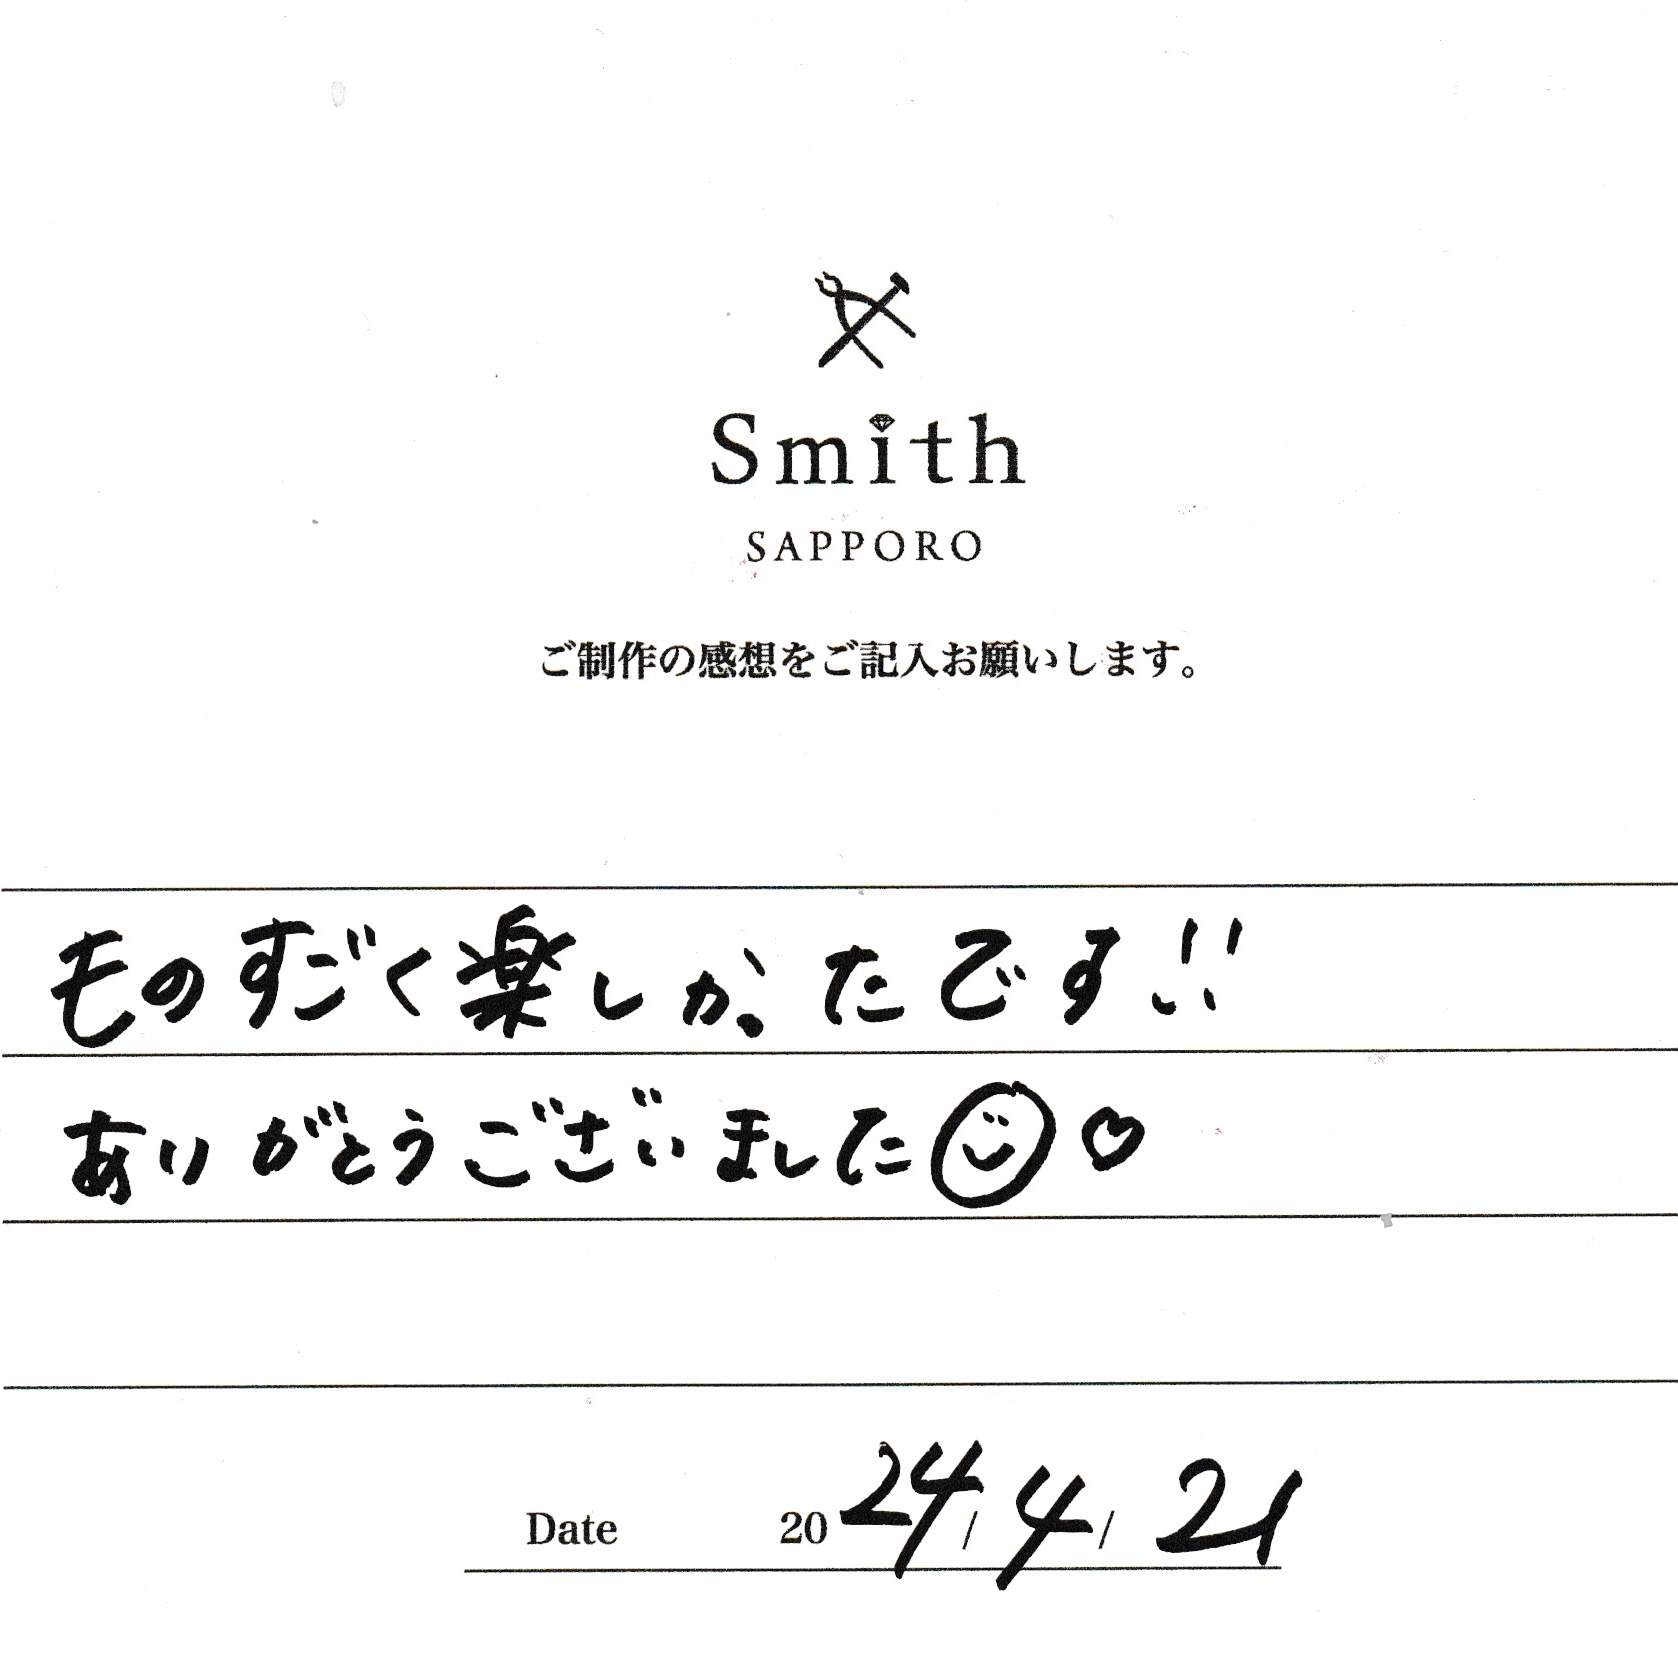 Smith
SAPPORO
ご制作の感想をご記入お願いします。
ものすごく楽しかったです!!
ありがとうございました☺♡
Date 2024/4/21